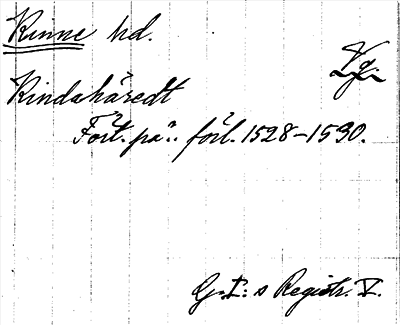 Kinne hd.
Vgl.
Kindahäredt
Fört. på.. förl. 1528-1530.
G. I: s Registr. V.